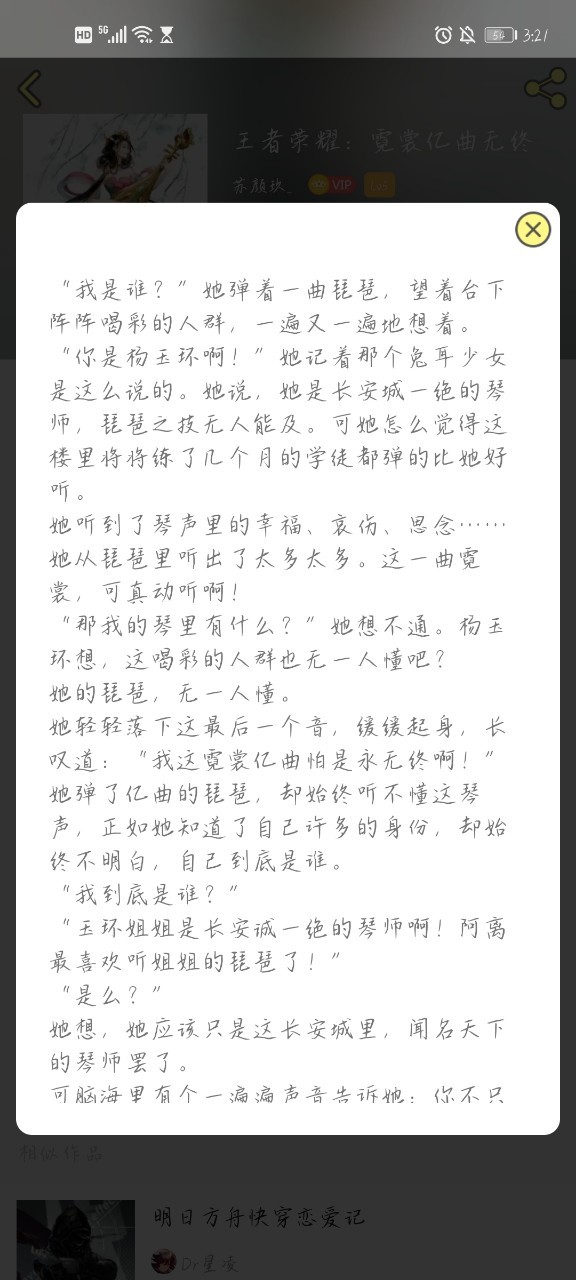 HD 5G 54 3:21
王者荣耀：霓裳亿曲无终
苏颜玖_ VIP Lv6
“我是谁？”她弹着一曲琵琶，望着台下
阵阵喝彩的人群，一遍又一遍地想着。
“你是杨玉环啊！”她记着那个兔耳少女
是这么说的。她说，她是长安城一绝的琴
师，琵琶之技无人能及。可她怎么觉得这
楼里将将练了几个月的学徒都弹的比她好
听。
她听到了琴声里的幸福、哀伤、思念……
她从琵琶里听出了太多太多。这一曲霓
裳，可真动听啊！
“那我的琴里有什么？”她想不通。杨玉
环想，这喝彩的人群也无一人懂吧？
她的琵琶，无一人懂。
她轻轻落下这最后一个音，缓缓起身，长
叹道：“我这霓裳亿曲怕是永无终啊！”
她弹了亿曲的琵琶，却始终听不懂这琴
声，正如她知道了自己许多的身份，却始
终不明白，自己到底是谁。
“我到底是谁？”
“玉环姐姐是长安诚一绝的琴师啊！阿离
最喜欢听姐姐的琵琶了！”
“是么？”
她想，她应该只是这长安城里，闻名天下
的琴师罢了。
可脑海里有个一遍遍声音告诉她：你不只
相似作品
明日方舟快穿恋爱记
Dr星凌